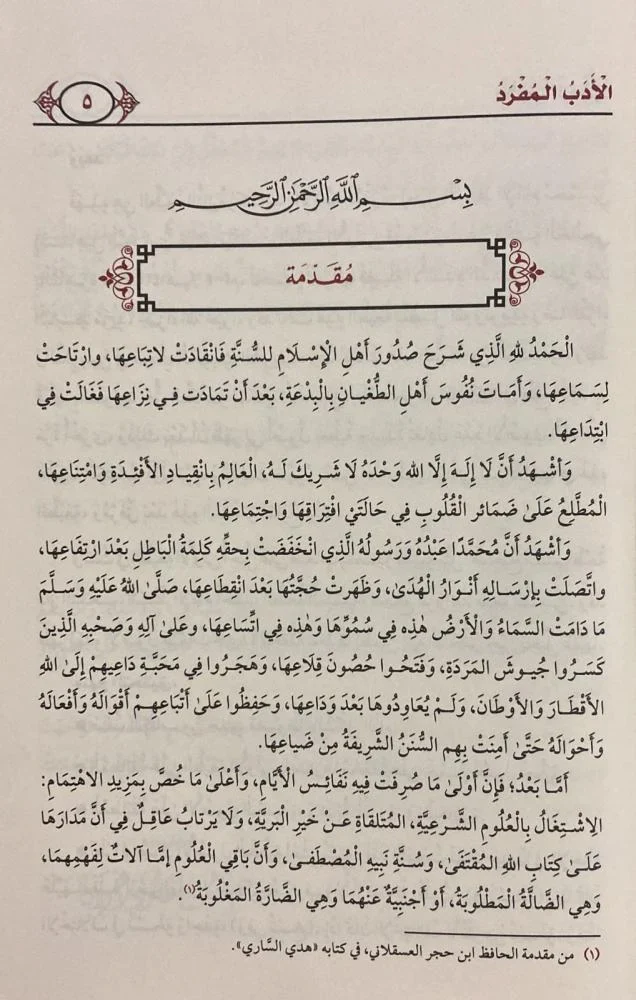 الْأَدَبُ الْمُفْرَدُ
٥
بِسْمِ اللَّهِ الرَّحْمَٰنِ الرَّحِيمِ
مُقَدِّمَة
الْحَمْدُ للهِ الَّذِي شَرَحَ صُدُورَ أَهْلِ الْإِسْلَامِ للسُّنَّةِ فَانْقَادَتْ لاتِبَاعِهَا، وارْتَاحَتْ
لِسَمَاعِهَا، وَأَمَاتَ نُفُوسَ أَهْلِ الطُّغْيانِ بِالْبِدْعَةِ، بَعْدَ أَنْ تَمَادَت فِي نِزَاعِهَا فَغَالَتْ فِي
ابْتِدَاعِهَا.
وَأَشْهَدُ أَنَّ لَا إِلَهَ إِلَّا الله وَحْدَهُ لَا شَرِيكَ لَهُ، الْعَالِمُ بِانْقِيادِ الأَفْئِدَةِ وَامْتِنَاعِهَا،
الْمُطَّلِعُ عَلَىٰ ضَمَائر الْقُلُوبِ فِي حَالَتَيْ افْتِرَاقِهَا وَاجْتِمَاعِهَا.
وَأَشْهَدُ أَنَّ مُحَمَّدًا عَبْدُهُ وَرَسُولُهُ الَّذِي انْخَفَضَتْ بِحقِّه كَلِمَةُ الْبَاطِلِ بَعْدَ ارْتِفَاعِهَا،
واتَّصَلَتْ بِإرْسَالِهِ أَنْوَارُ الْهُدَىٰ، وَظَهَرَتْ حُجَّتُهَا بَعْدَ انْقِطَاعِهَا، صَلَّىٰ اللهُ عَلَيْهِ وَسَلَّمَ
مَا دَامَتْ السَّمَاءُ وَالْأَرْضُ هٰذِه فِي سُمُوِّهَا وَهٰذِه فِي اتِّسَاعِهَا، وعلىٰ آلِهِ وَصَحْبِهِ الَّذِينَ
كَسَرُوا جُيوشَ المَرَدَةِ، وَفَتَحُوا حُصُونَ قِلَاعِهَا، وَهَجَرُوا فِي مَحَبَّةِ دَاعِيهِمْ إِلَىٰ اللهِ
الأَقْطَارَ وَالأَوْطَانَ، وَلَمْ يُعَاوِدُوهَا بَعْدَ وَدَاعِهَا، وَحَفِظُوا عَلَىٰ أَتْبَاعِهِمْ أَقْوَالَهُ وَأَفْعَالَهُ
وَأَحْوَالَهُ حَتَّىٰ أَمِنَتْ بِهِم السُّنَنُ الشَّرِيفَةُ مِنْ ضَياعِهَا.
أَمَّا بَعْدُ؛ فَإِنَّ أَوْلَىٰ مَا صُرِفَتْ فِيهِ نَفَائِسُ الْأَيَّامِ، وَأَعْلَىٰ مَا خُصَّ بِمَزِيدِ الاهْتِمَامِ:
الِاشْتِغَالُ بِالْعُلُومِ الشَّرْعِيَّةِ، المُتَلقَاةِ عَنْ خَيْرِ الْبَرِيَّةِ، وَلَا يَرْتابُ عَاقِلٌ فِي أَنَّ مَدَارَهَا
عَلَىٰ كِتَابِ اللهِ المُقْتَفَىٰ، وَسُنَّةِ نَبِيهِ الْمُصْطَفَىٰ، وَأَنَّ بَاقِي الْعُلُومِ إمَّا آلَاتٌ لِفَهْمِهِمَا،
وَهِيَ الضَّالَّةُ الْمَطْلُوبَةُ، أَوْ أَجْنَبِيَّةٌ عَنْهُمَا وَهِيَ الضَّارَّةُ المَغْلُوبَةُ(١).
(١) من مقدمة الحافظ ابن حجر العسقلاني، في كتابه «هدي السَّاري».